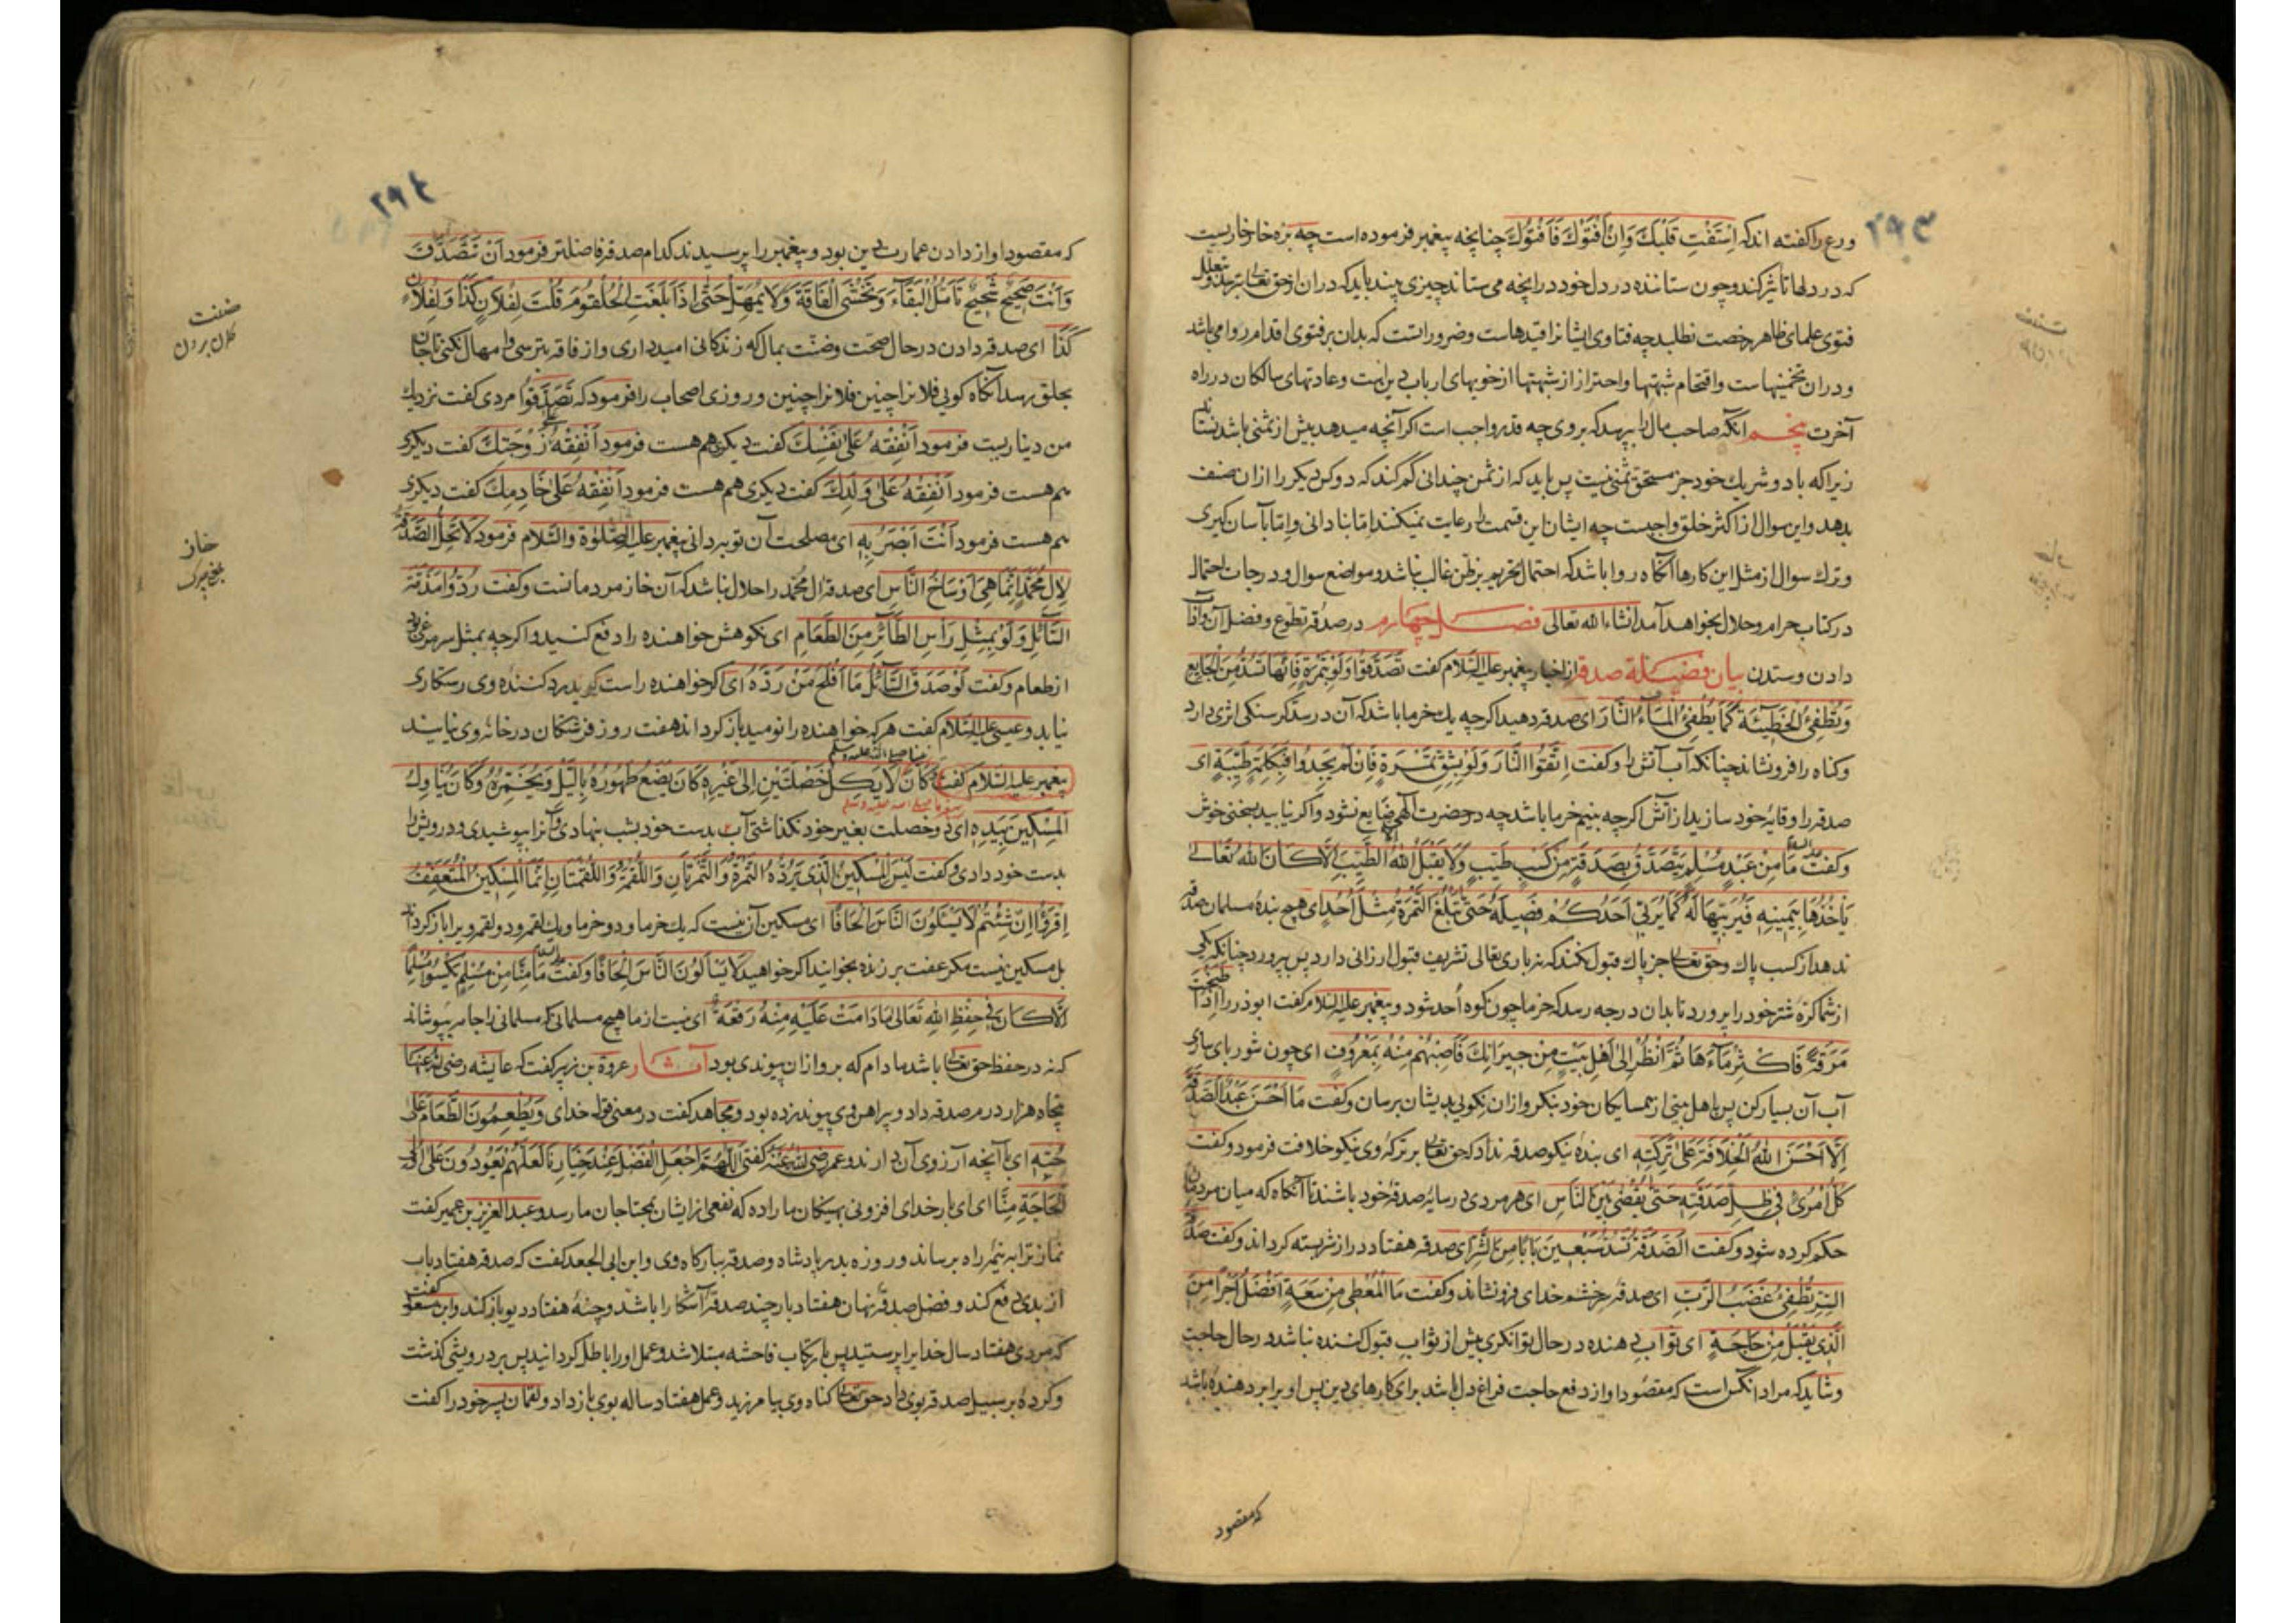 ۲۹۳
ورع را گفته اند که اِسْتَفْتِ قَلْبَكَ وَاِنْ اَفْتَوْكَ فَاَفْتَوْكَ چنانچه پیغمبر فرموده است چه بزه خار خاریست
که در دلها تاثیر کند و چون ستاننده در دل خود در انچه می ستاند چیزی بیند باید که در ان از حق تعالی بترسد و بتعلل
فتوی علمای ظاهر رخصت نطلبد چه فتاوی ایشانرا قیدهاست و ضروراتست که بدان بر فتوی اقدام روا می باشد
و در ان تخمینهاست و اقتحام شبهتها و احتراز از شبهتها از خویهای ارباب دین است و عادتهای سالکان در راه
آخرت پنجم آنکه صاحب مال را بپرسد که بر وی چه قدر واجب است اگر آنچه میدهد بیش از ثمنی باشد نستاند
زیرا که با دو شریك خود جز مستحق ثمنی نیست پس باید که از ثمن چندانی کم کند که دو کس دیگر را از ان صنف
بدهد و این سوال از اکثر خلق واجبست چه ایشان این قسمت را رعایت نمیکنند اما بنادانی و اما بآسان گیری
و ترك سوال از مثل این کارها آنگاه روا باشد که احتمال تحریم بر ظن غالب نباشد و مواضع سوال و درجات احتمال
در کتاب حرام و حلال بخواهد آمد انشاء الله تعالی فصل چهارم در صدقه تطوع و فضل آن و آداب
دادن و ستدن بیان فضیلة صدقه از اخبار پیغمبر علیه السلام گفت تَصَدَّقُوا وَلَوْ بِتَمْرَةٍ فَاِنَّهَا تَسُدُّ مِنَ الْجَایِعِ
وَتُطْفِئُ الْخَطِیْئَةَ کَمَا یُطْفِئُ الْمَاءُ النَّارَ ای صدقه دهید اگرچه یك خرما باشد که آن در سد گرسنگی اثری دارد
و گناه را فرو نشاند چنانکه آب آتش را و گفت اِتَّقُوا النَّارَ وَلَوْ بِشِقِّ تَمْرَةٍ فَاِنْ لَمْ یَجِدُوا فَبِکَلِمَةٍ طَیِّبَةٍ ای
صدقه را وقایه خود سازید از آتش اگرچه بنیم خرما باشد چه در حضرت الهی ضایع نشود و اگر نیابید بسخنی خوش
و گفت علیه السلام مَا مِنْ عَبْدٍ مُسْلِمٍ یَتَصَدَّقُ بِصَدَقَةٍ مِنْ کَسْبٍ طَیِّبٍ وَلَا یَقْبَلُ اللهُ اِلَّا الطَّیِّبَ اِلَّا کَانَ اللهُ تَعَالٰی
یَاْخُذُهَا بِیَمِیْنِهٖ فَیُرَبِّیْهَا لَهٗ کَمَا یُرَبِّیْ اَحَدُکُمْ فَصِیْلَهٗ حَتّٰی تَبْلُغَ التَّمْرَةُ مِثْلَ اُحُدٍ ای هیچ بنده مسلمان صدقه
ندهد از کسب پاك و حق تعالی جز پاك قبول نکند که نه باری تعالی تشریف قبول ارزانی دارد پس بپرورد چنانکه یکی
از شما کره شتر خود را پرورد تا بدان درجه رسد که خرما چون کوه اُحد شود و پیغمبر علیه السلام گفت ابوذر را اِذَا طَبَخْتَ
مَرَقَةً فَاَکْثِرْ مَآءَهَا ثُمَّ انْظُرْ اِلٰی اَهْلِ بَیْتٍ مِنْ جِیْرَانِكَ فَاَصِبْهُمْ مِنْهُ بِمَعْرُوفٍ ای چون شوربای سازی
آب آن بسیار کن پس باهل بیتی از همسایگان خود بنگر و ازان نکویی بدیشان برسان و گفت مَا اَحْسَنَ عَبْدٌ الصَّدَقَةَ
اِلَّا اَحْسَنَ اللهُ الْخِلَافَةَ عَلٰی تَرِکَتِهٖ ای بنده نیکو صدقه نداد که حق تعالی بر ترکه وی نیکو خلافت فرمود و گفت
کُلُّ امْرِئٍ فِیْ ظِلِّ صَدَقَتِهٖ حَتّٰی یُقْضٰی بَیْنَ النَّاسِ ای هر مردی در سایه صدقه خود باشند تا آنگاه که میان مردمان
حکم کرده شود و گفت الصَّدَقَةُ تَسُدُّ سَبْعِیْنَ بَابًا مِنَ الشَّرِّ ای صدقه هفتاد در از شر بسته گرداند و گفت صَدَقَةُ
السِّرِّ تُطْفِئُ غَضَبَ الرَّبِّ ای صدقه سر خشم خدای فرو نشاند و گفت مَا الْمُعْطِی مِنْ سَعَةٍ اَفْضَلُ اَجْرًا مِنَ
الَّذِیْ یَقْبَلُ مِنْ حَاجَةٍ ای ثواب دهنده در حال توانگری بیش از ثواب قبول کننده نباشد در حال حاجت
و شاید که مراد آنکس است که مقصود او از دفع حاجت فراغ دل باشد برای کارهای دین پس او برابر دهنده باشد
که مقصود
۲۹٤
که مقصود او از دادن عمارت دین بود و پیغمبر را پرسیدند کدام صدقه فاضلتر فرمود اَنْ تَصَدَّقَ
وَاَنْتَ صَحِیْحٌ شَحِیْحٌ تَاْمُلُ الْبَقَآءَ وَتَخْشَی الْفَاقَةَ وَلَا تُمْهِلْ حَتّٰی اِذَا بَلَغَتِ الْحُلْقُوْمَ قُلْتَ لِفُلَانٍ کَذَا وَلِفُلَانٍ
کَذَا ای صدقه دادن در حال صحت و ضنت بمال که زندگانی امید داری و از فاقه بترسی و امهال نکنی تا جان
بحلق رسد آنگاه گویی فلانرا چنین فلانرا چنین و روزی اصحاب را فرمود که تَصَدَّقُوْا مردی گفت نزدیك
من دیناریست فرمود اَنْفِقْهُ عَلٰی نَفْسِكَ گفت دیگری هم هست فرمود اَنْفِقْهُ عَلٰی زَوْجَتِكَ گفت دیگری
هم هست فرمود اَنْفِقْهُ عَلٰی وَلَدِكَ گفت دیگری هم هست فرمود اَنْفِقْهُ عَلٰی خَادِمِكَ گفت دیگری
هم هست فرمود اَنْتَ اَبْصَرُ بِهٖ ای مصلحت آن تو به دانی پیغمبر علیه الصلوة والسلام فرمود لَا تَحِلُّ الصَّدَقَةُ
لِاٰلِ مُحَمَّدٍ اِنَّمَا هِیَ اَوْسَاخُ النَّاسِ ای صدقه ال محمد را حلال نباشد که آن خاز مردمانست و گفت رُدُّوْا مَذَمَّةَ
السَّآئِلِ وَلَوْ بِمِثْلِ رَاْسِ الطَّائِرِ مِنَ الطَّعَامِ ای نکوهش خواهنده را دفع کنید و اگرچه بمثل سر مرغی بود
از طعام و گفت لَوْ صَدَقَ السَّآئِلُ مَا اَفْلَحَ مَنْ رَدَّهٗ ای اگر خواهنده راست گوید رد کننده وی رستگاری
نیابد و عیسی علیه السلام گفت هر که خواهنده را نومید باز گرداند هفت روز فرشتگان در خانه وی نیایند
پیغمبر علیه السلام گفت کَانَ لَا یَکِلُ خَصْلَتَیْنِ اِلٰی غَیْرِهٖ کَانَ یَضَعُ طَهُوْرَهٗ بِاللَّیْلِ وَیُخَمِّرُهٗ وَکَانَ یُنَاوِلُ
الْمِسْکِیْنَ بِیَدِهٖ ای دو خصلت بغیر خود نگذاشتی آب بدست خود بشب بنهادی و آنرا بپوشیدی و درویش را
بدست خود دادی و گفت لَیْسَ الْمِسْکِیْنُ الَّذِیْ یَرُدُّهُ التَّمْرَةُ وَالتَّمْرَتَانِ وَاللُّقْمَةُ وَاللُّقْمَتَانِ اِنَّمَا الْمِسْکِیْنُ الْمُتَعَفِّفُ
اِقْرَؤُا اِنْ شِئْتُمْ لَا یَسْئَلُوْنَ النَّاسَ اِلْحَافًا ای مسکین آن نیست که یك خرما و دو خرما و یك لقمه و دو لقمه ویرا باز گرداند
بل مسکین نیست مگر عفت برزنده بخوانید اگر خواهید لَا یَسْاَلُوْنَ النَّاسَ اِلْحَافًا و گفت مَا مِنْ مُسْلِمٍ یَکْسُوْ مُسْلِمًا
اِلَّا کَانَ فِیْ حِفْظِ اللهِ تَعَالٰی مَا دَامَتْ عَلَیْهِ مِنْهُ رُقْعَةٌ ای نیست از ما هیچ مسلمانی که مسلمانی را جامه بپوشاند
که نه در حفظ حق تعالی باشد مادام که برو ازان پیوندی بود آثار عروة بن زبیر گفت که عایشه رضی الله عنها
پنجاه هزار درم صدقه داد و پیراهن وی پیوند زده بود و مجاهد گفت در معنی قول خدای وَیُطْعِمُوْنَ الطَّعَامَ عَلٰی
حُبِّهٖ ای با آنچه آرزوی آن دارند و عمر رضی الله عنه گفتی اَللّٰهُمَّ اجْعَلِ الْفَضْلَ عِنْدَ خِیَارِنَا لَعَلَّهُمْ یَعُوْدُوْنَ عَلٰی اُولِی
الْحَاجَةِ مِنَّا ای بار خدای افزونی بهینگان ما را ده که نفعی از ایشان بمحتاجان ما رسد و عبد العزیز بن عمیر گفت
نماز ترا به نیمه راه برساند و روزه بدر پادشاه و صدقه ببارگاه وی و ابن ابی الجعد گفت که صدقه هفتاد باب
از بدی دفع کند و فضل صدقه نهان هفتاد بار چند صدقه آشکارا باشد و جثه هفتاد دیو باز کند و ابن مسعود گفت
که مردی هفتاد سال خدایرا پرستید پس بارتکاب فاحشه مبتلا شد و عمل او را باطل گردانید پس بر درویشی گذشت
و گرده بر سبیل صدقه بوی داد حق تعالی گناه وی بیامرزید و عمل هفتاد ساله بوی باز داد و لقمان پسر خود را گفت
ضنت
خاز
چرك